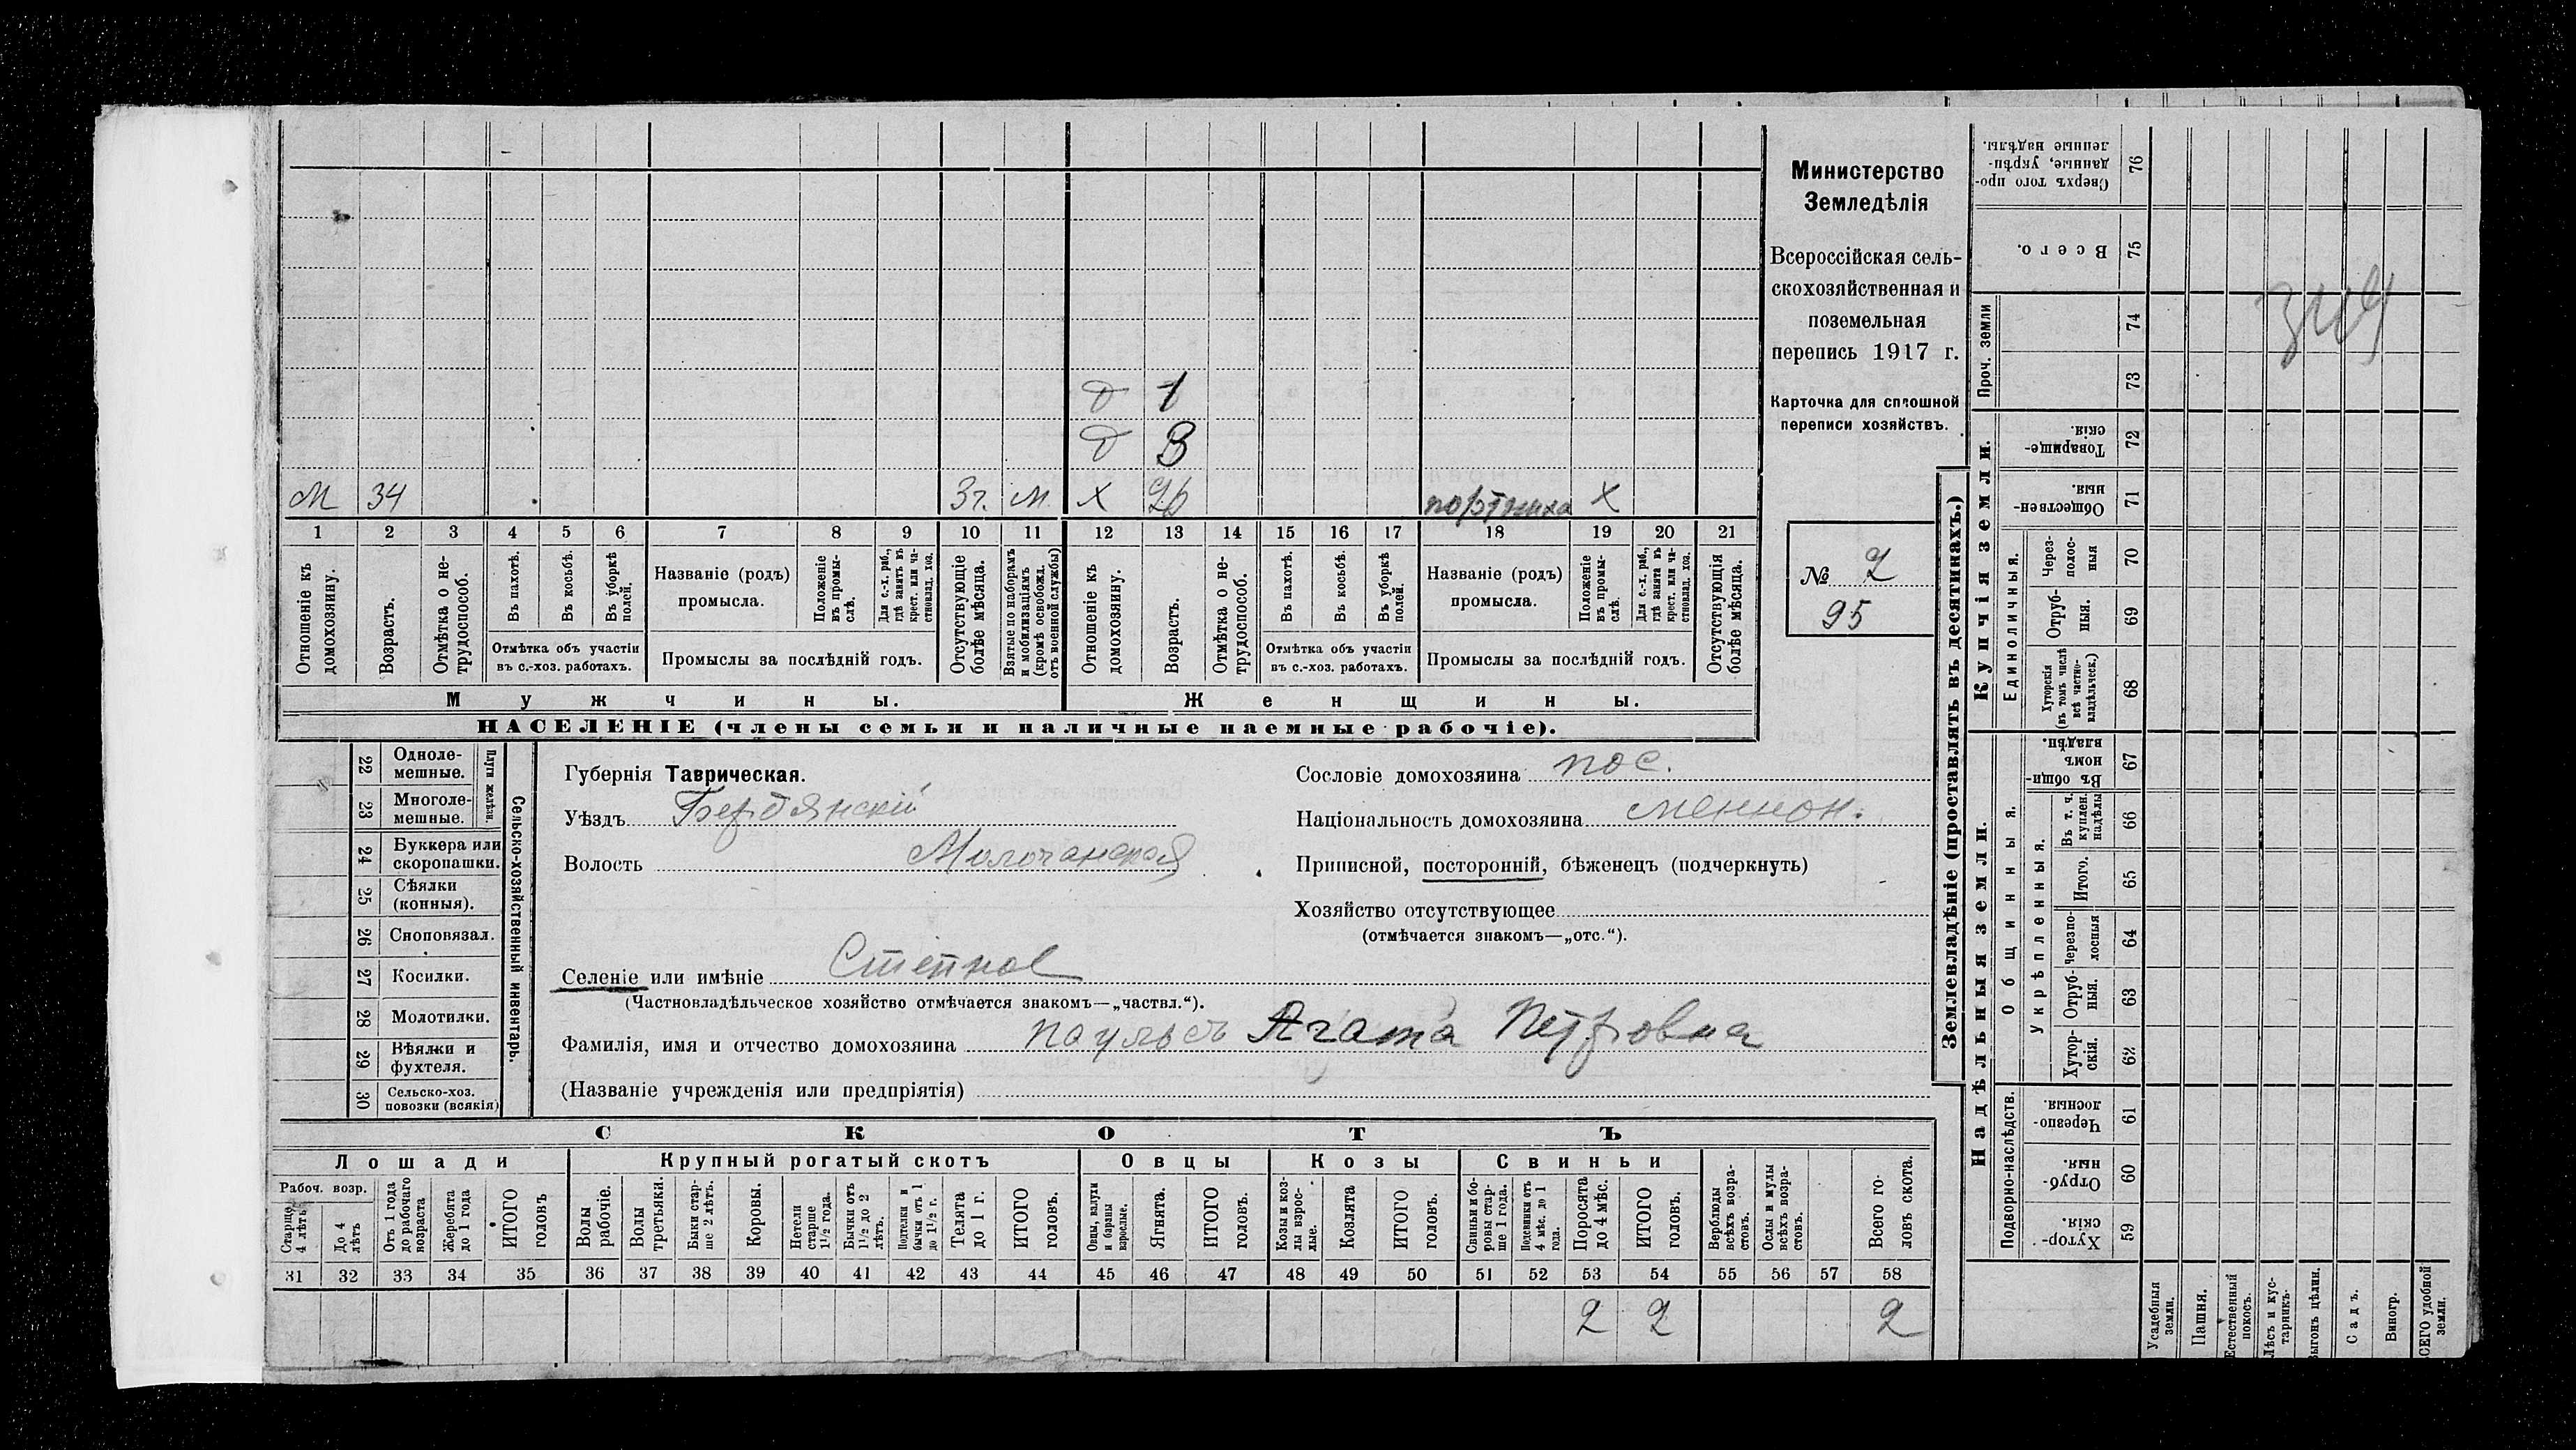 М 34 3 г. м. Х 26 портниха Х
д 3
д 1
1 2 3 4 5 6 7 8 9 10 11 12 13 14 15 16 17 18 19 20 21
Отношеніе къ домохозяину.
Возрастъ.
Отмѣтка о не-
трудоспособ.
Въ пахотѣ.
Въ косьбѣ.
Въ уборкѣ
полей.
Отмѣтка объ участіи
въ с.-хоз. работахъ.
Названіе (родъ)
промысла.
Положеніе
въ промы-
слѣ.
Для с.-х. раб.,
гдѣ занятъ въ
крест. или ча-
стновлад. хоз.
Промыслы за послѣдній годъ.
Отсутствующіе
болѣе мѣсяца.
Взятые по наборамъ
и мобилизаціямъ
(кромѣ освобожд.
отъ военной службы)
Отношеніе къ
домохозяину.
Возрастъ.
Отмѣтка о не-
трудоспособ.
Въ пахотѣ.
Въ косьбѣ.
Въ уборкѣ
полей.
Отмѣтка объ участіи
въ с.-хоз. работахъ.
Названіе (родъ)
промысла.
Положеніе
въ промы-
слѣ.
Для с.-х. раб.,
гдѣ занята въ
крест. или ча-
стновлад. хоз.
Промыслы за послѣдній годъ.
Отсутствующія
болѣе мѣсяца.
Мужчины.
Женщины.
НАСЕЛЕНІЕ (члены семьи и наличные наемные рабочіе).
Министерство
Земледѣлія
Всероссійская сель-
скохозяйственная и
поземельная
перепись 1917 г.
Карточка для сплошной
переписи хозяйствъ.
№ 2
95
22 Одноле-
мешные.
23 Многоле-
мешные.
Плуги желѣзн.
24 Буккера или
скоропашки.
25 Сѣялки
(конныя).
26 Сноповязал.
27 Косилки.
28 Молотилки.
29 Вѣялки и
фухтеля.
30 Сельско-хоз.
повозки (всякія)
Сельско-хозяйственный инвентарь.
Губернія Таврическая.
Уѣздъ Бердянскій
Волость Молочанская
Селеніе или имѣніе Степное
(Частновладѣльческое хозяйство отмѣчается знакомъ—„частвл.“).
Фамилія, имя и отчество домохозяина Паульсъ Агата Петровна
(Названіе учрежденія или предпріятія)
Сословіе домохозяина пос.
Національность домохозяина меннон.
Приписной, посторонній, бѣженецъ (подчеркнуть)
Хозяйство отсутствующее
(отмѣчается знакомъ—„отс.“).
СКОТЪ
Лошади
Крупный рогатый скотъ
Овцы
Козы
Свиньи
Рабоч. возр.
Старше
4 лѣтъ
До 4
лѣтъ
Отъ 1 года
до рабочаго
возраста
Жеребята
до 1 года
ИТОГО
головъ
Волы
рабочіе.
Волы
третьяки.
Быки стар-
ше 2 лѣтъ.
Коровы.
Нетели
старше
1½ года.
Бычки отъ
1½ до 2
лѣтъ.
Подтелки и
бычки отъ 1
до 1½ г.
Телята
до 1 г.
ИТОГО
головъ.
Овцы, валухи
и бараны
взрослые.
Ягнята.
ИТОГО
головъ.
Козы и коз-
лы взрос-
лые.
Козлята
ИТОГО
головъ.
Свиньи и бо-
ровы стар-
ше 1 года.
Подсвинки отъ
4 мѣс. до 1
года.
Поросята
до 4 мѣс.
ИТОГО
головъ.
Верблюды
всѣхъ возра-
стовъ.
Ослы и мулы
всѣхъ возра-
стовъ.
Всего го-
ловъ скота.
31 32 33 34 35 36 37 38 39 40 41 42 43 44 45 46 47 48 49 50 51 52 53 54 55 56 57 58
2 2 2
Землевладѣніе (проставлять въ десятинахъ.)
Купчія земли.
Надѣльныя земли.
Проч. земли
Единоличныя.
Общинныя.
Укрѣпленныя.
Подворно-наслѣдств.
Сверхъ того про-
данные, укрѣп-
ленные надѣлы.
76
Всего.
75
74
73
Товарище-
скія.
72
Обществен-
ныя.
71
Через-
полос-
ныя
70
Отруб-
ныя.
69
Хуторскія
(въ томъ числѣ
всѣ частно-
владѣльческ.)
68
Въ общи-
номъ
владѣн.
67
Въ т. ч.
куплен.
надѣлы
66
Итого.
65
Черезпо-
лосныя
64
Отруб-
ныя.
63
Хутор-
скія.
62
Черезпо-
лосныя.
61
Отруб-
ныя.
60
Хутор-
скія.
59
Усадебныя
земли.
Пашня.
Естественный
покосъ.
Лѣсъ и кус-
тарникъ.
Выгонъ цѣлин.
Садъ.
Виногр.
ВСЕГО удобной
земли.